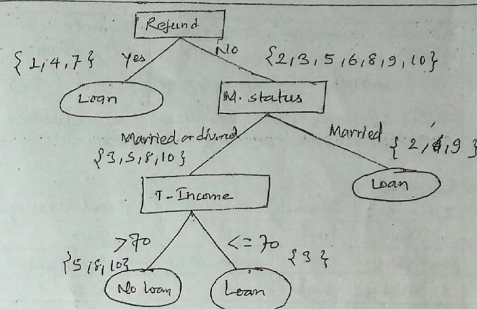 Refund
{1,4,7} Yes No {2,3,5,6,8,9,10}
Loan M. status
Married or divorced Married {2,6,9}
{3,5,8,10}
T-Income Loan
>70 <=70 {3}
{5,8,10}
No loan Loan